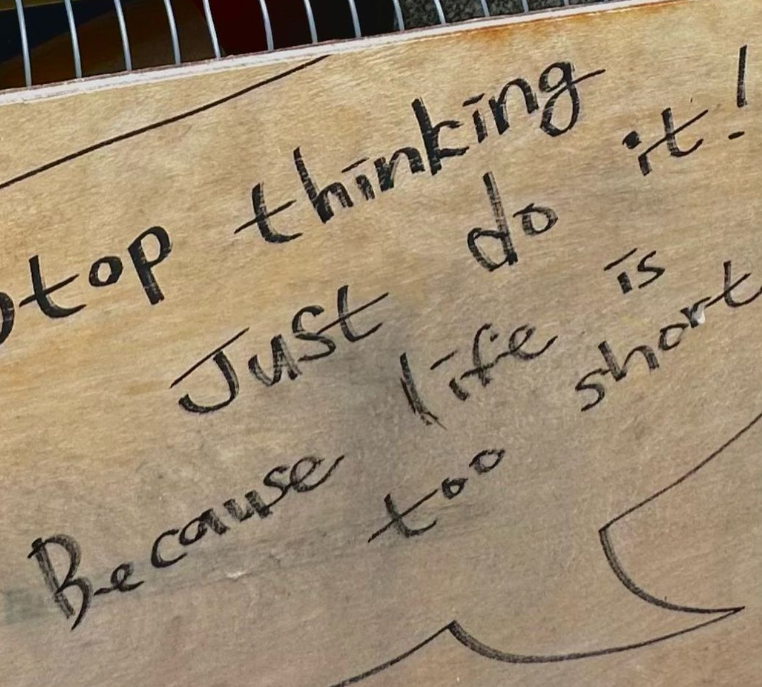 Stop thinking
Just do it!
Because life is
too short